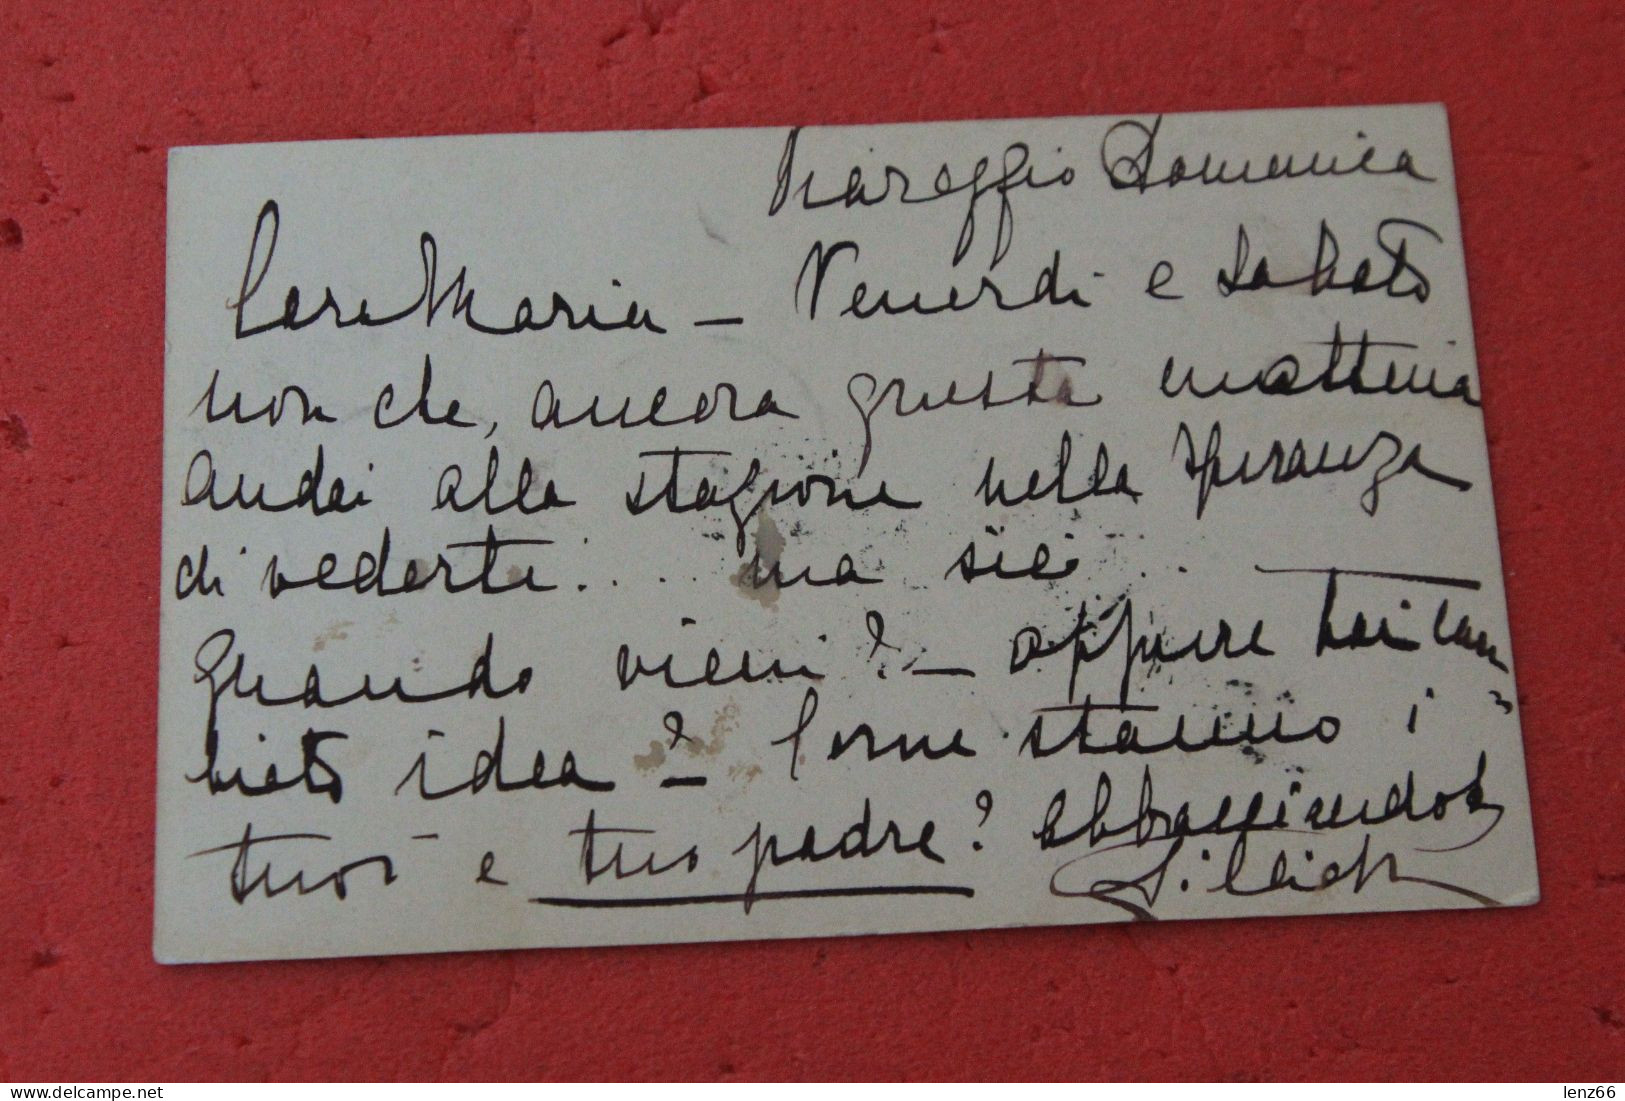 Viareggio Domenica
Cara Maria – Venerdi e Sabato
non che, ancora questa mattina
andai alla stazione nella speranza
di vederti.... ma sìe! ...
Quando vieni? – oppure hai cam
biato idea? – Come stanno i
tuoi – e tuo padre? abbracciandoti
lenz66
delcampe.net